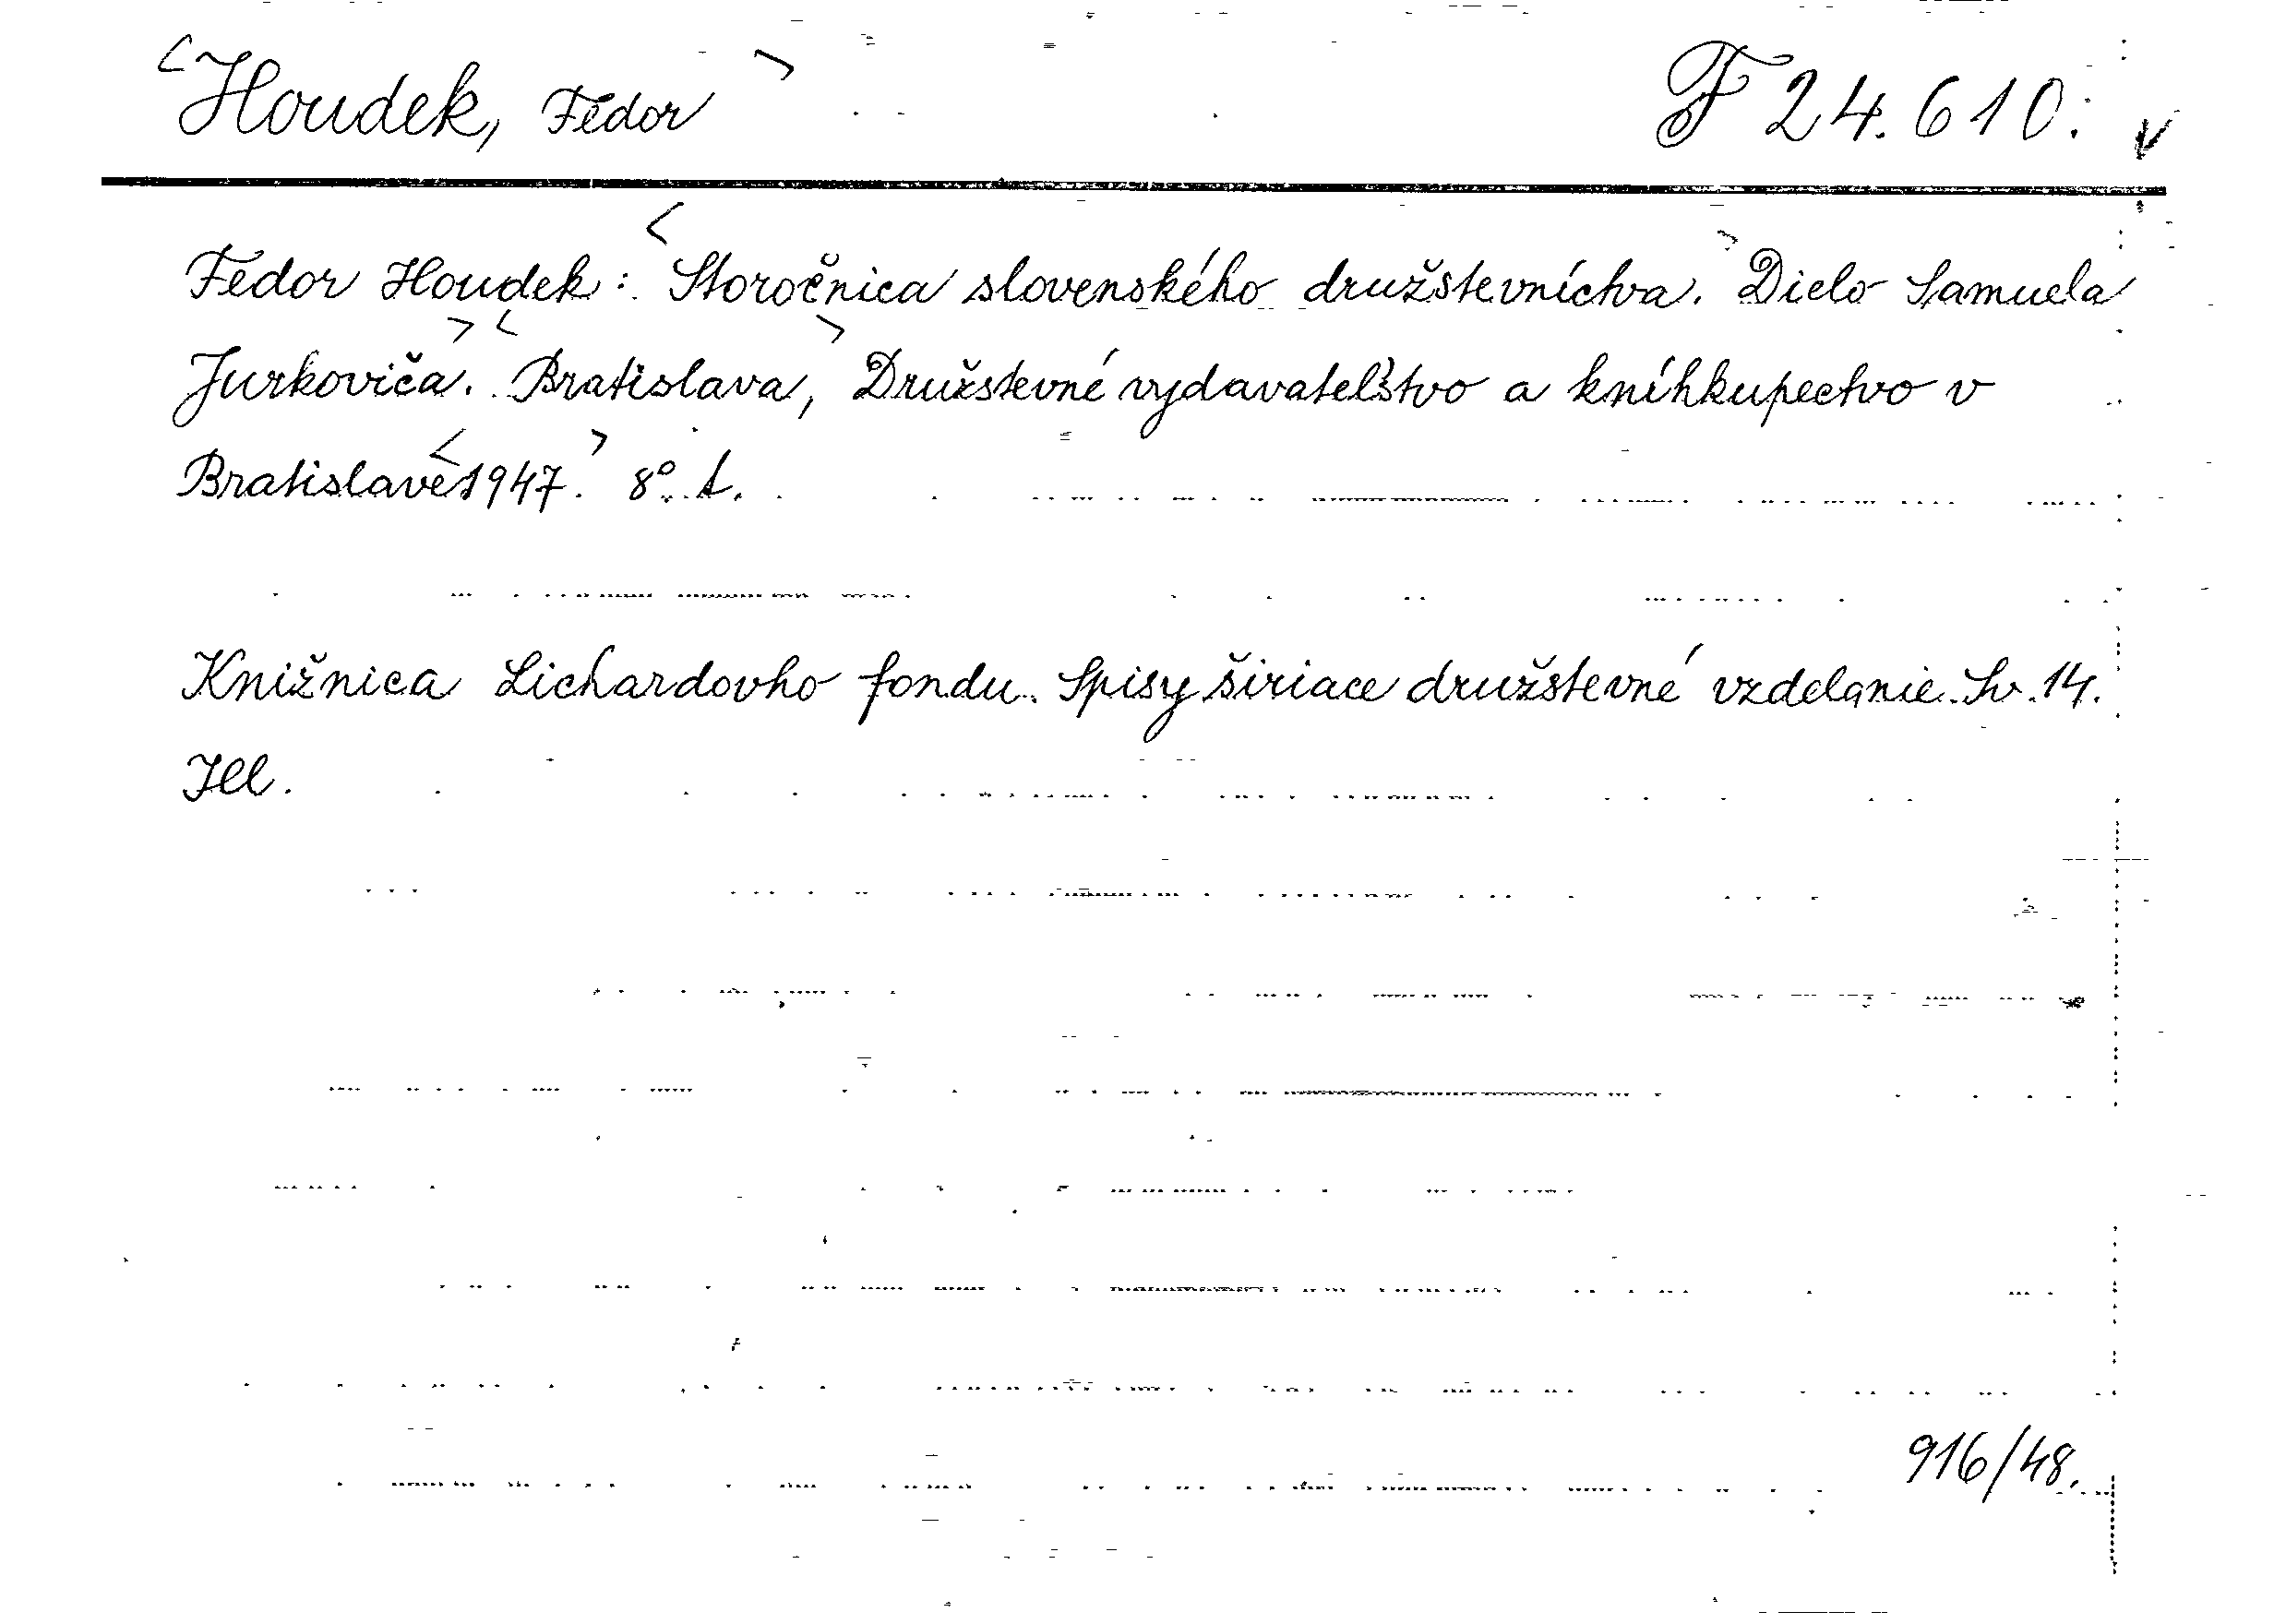 <Houdek, Fedor> F 24.610.
Fedor Houdek: <Storočnica slovenského družstevníctva.> Dielo Samuela
Jurkoviča.> <Bratislava,> Družstevné vydavateľstvo a kníhkupectvo v
Bratislave <1947.> 8° t.
Knižnica Lichardovho fondu. Spisy širiace družstevné vzdelanie. Sv. 14.
Ill.
916/48.